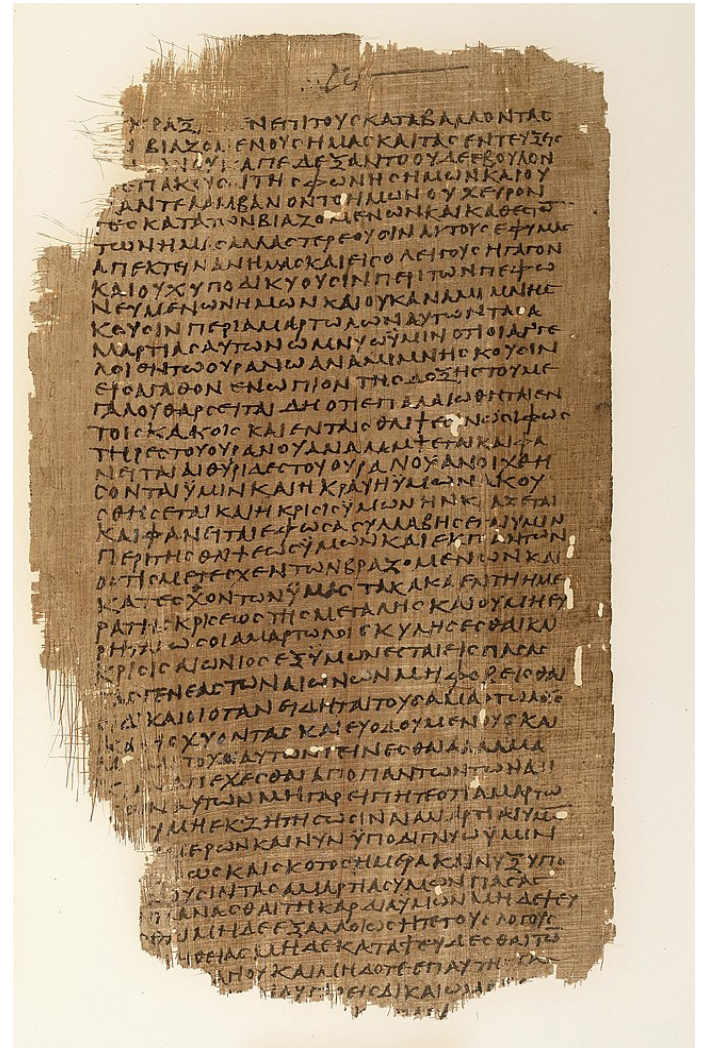 ΝΕΠΙΤΟΥϹΚΑΤΑΒΑΛΛΟΝΤΑϹ
ΒΙΑΖΟΜΕΝΟΥϹΗΜΑϹΚΑΙΤΑϹΕΝΤΕΥΞΕΙϹ
ΟΥΚΑΠΕΔΕΞΑΝΤΟΟΥΔΕΕΒΟΥΛΟΝ
ΕΠΑΚΟΥϹΑΙΤΗϹΦΩΝΗϹΗΜΩΝΚΑΙΟΥ
ΑΝΤΕΛΑΜΒΑΝΟΝΤΟΗΜΩΝΟΥΧΕΥΡΟΝ
ΤΕϹΚΑΤΑΤΩΝΒΙΑΖΟΜΕΝΩΝΚΑΙΚΑΤΕϹΘΟ
ΤΩΝΗΜΑϹΑΛΛΑϹΤΕΡΕΟΥϹΙΝΑΥΤΟΥϹΕΦΥΜΑϹ
ΑΠΕΚΤΕΙΝΑΝΗΜΑϹΚΑΙΕΙϹΟΛΕΙΓΟΥϹΗΓΑΓΟΝ
ΚΑΙΟΥΧΥΠΟΔΙΚΥΟΥϹΙΝΠΕΡΙΤΩΝΠΕΦΩ
ΝΕΥΜΕΝΩΝΗΜΩΝΚΑΙΟΥΚΑΝΑΜΙΜΝΗϹ
ΚΟΥϹΙΝΠΕΡΙΑΜΑΡΤΩΛΩΝΑΥΤΩΝΤΑϹΑ
ΜΑΡΤΙΑϹΑΥΤΩΝΩΜΝΥΩΫΜΙΝΟΤΙΟΙΑΓΓΕ
ΛΟΙΕΝΤΩΟΥΡΑΝΩΑΝΑΜΙΜΝΗϹΚΟΥϹΙΝ
ΕΙϹΑΓΑΘΟΝΕΝΩΠΙΟΝΤΗϹΔΟΞΗϹΤΟΥΜΕ
ΓΑΛΟΥΘΑΡϹΕΙΤΑΙΔΗΟΤΙΕΠΑΛΑΙΩΘΗΤΑΙΕΝ
ΤΟΙϹΚΑΚΟΙϹΚΑΙΕΝΤΑΙϹΘΛΙΨΕϹΙΝΩϹΙΦΩϹ
ΤΗΡΕϹΤΟΥΟΥΡΑΝΟΥΑΝΑΛΑΜΨΕΤΑΙΚΑΙΦΑ
ΝΕΙΤΑΙΑΙΘΥΡΙΔΕϹΤΟΥΟΥΡΑΝΟΥΑΝΟΙΧΘΗ
ϹΟΝΤΑΙΫΜΙΝΚΑΙΗΚΡΑΥΗΫΜΩΝΑΚΟΥ
ϹΘΗϹΕΤΑΙΚΑΙΗΚΡΙϹΙϹΫΜΩΝΗΝΚΡΑΖΕΤΑΙ
ΚΑΙΦΑΝΕΙΤΑΙΕΦΟϹΑϹΥΛΛΑΒΗϹΕΤΑΙΥΜΙΝ
ΠΕΡΙΤΗϹΘΛΙΨΕΩϹΫΜΩΝΚΑΙΕΚΠΑΝΤΩΝ
ΟϹΤΙϹΜΕΤΕϹΧΕΝΤΩΝΒΡΑΖΟΜΕΝΩΝΚΑΙ
ΚΑΤΕϹΧΟΝΤΩΝΫΜΑϹΤΑΚΑΚΑΕΝΤΗΗΜΕ
ΡΑΤΗϹΚΡΙϹΕΩϹΤΗϹΜΕΓΑΛΗϹΚΑΙΟΥΜΗΕΥ
ΡΗΤΑΙΩϹΟΙΑΜΑΡΤΩΛΟΙϹΚΥΛΗϹΕϹΘΑΙΚΑΙ
ΚΡΙϹΙϹΑΙΩΝΙΟϹΕΞΫΜΩΝΕϹΤΑΙΕΙϹΠΑϹΑϹ
ΤΑϹΓΕΝΕΑϹΤΩΝΑΙΩΝΩΝΜΗΦΟΒΕΙϹΘΑΙ
ΔΙΚΑΙΟΙΟΤΑΝΕΙΔΗΤΑΙΤΟΥϹΑΜΑΡΤΩΛΟΥϹ
ΚΑΤΙϹΧΥΟΝΤΑϹΚΑΙΕΥΟΔΟΥΜΕΝΟΥϹΚΑΙ
ΤΟΧΟΙΑΥΤΩΝΓΕΙΝΕϹΘΑΙΑΛΛΑΜΑ
ΑΠΕΧΕϹΘΑΙΑΠΟΠΑΝΤΩΝΤΩΝΑΔΙ
ΑΥΤΩΝΜΗΓΑΡΕΙΠΗΤΕΟΤΙΑΜΑΡΤΩ
ΥΜΗΕΚΖΗΤΗϹΩϹΙΝΑΜΑΡΤΙΑΙΥΜ
ΕΡΩΝΚΑΙΝΥΝΫΠΟΔΙΓΝΥΩΫΜΙΝ
ΩϹΚΑΙϹΚΟΤΟϹΗΜΕΡΑΚΑΙΝΥΞΥΠΟ
ΟΥϹΙΝΤΑϹΑΜΑΡΤΙΑϹΥΜΩΝΠΑϹΑϹ
ΠΛΑΝΑϹΘΑΙΤΗΚΑΡΔΙΑΥΜΩΝΜΗΔΕΨΕΥ
ΜΗΔΕΕΞΑΛΛΟΙΩϹΗΤΕΤΟΥϹΛΟΓΟΥϹ
ΗΘΕΙΑϹΜΗΔΕΚΑΤΑΨΕΥΔΕϹΘΑΙΤΩ
ΓΙΟΥΚΑΙΜΗΔΟΤΕΕΠΑΥΤΗ